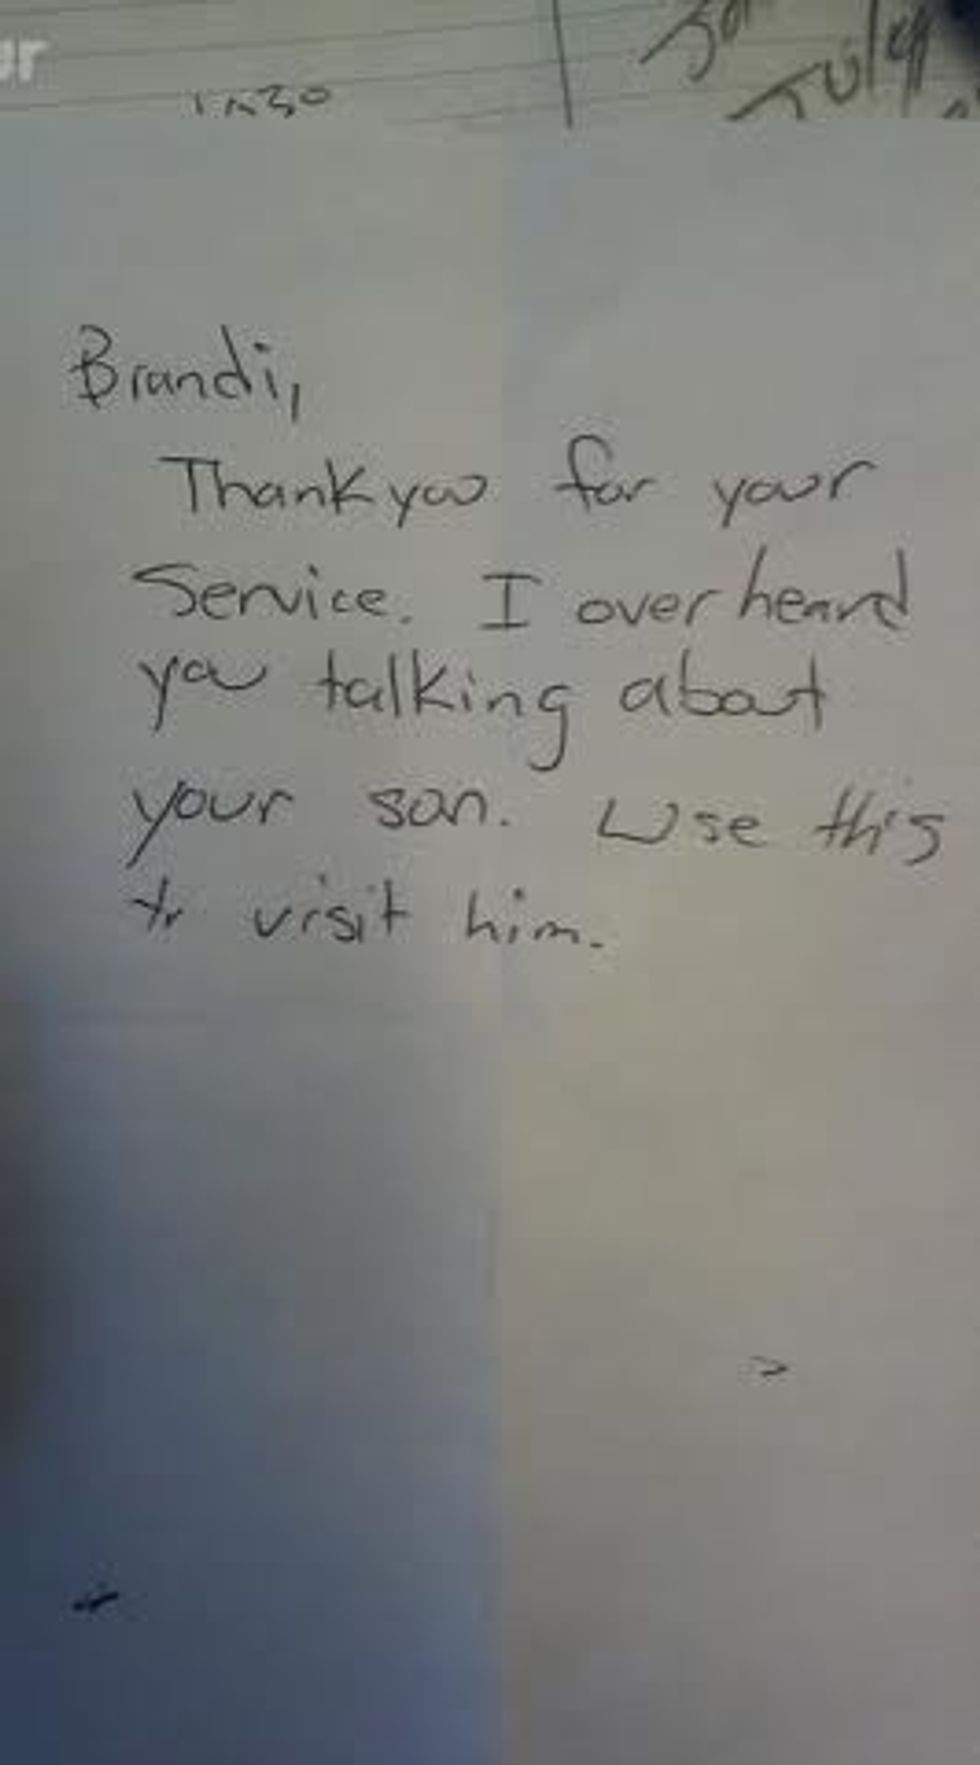 ur
Brandi,
Thank you for your
Service. I over heard
you talking about
your son. Use this
to visit him.